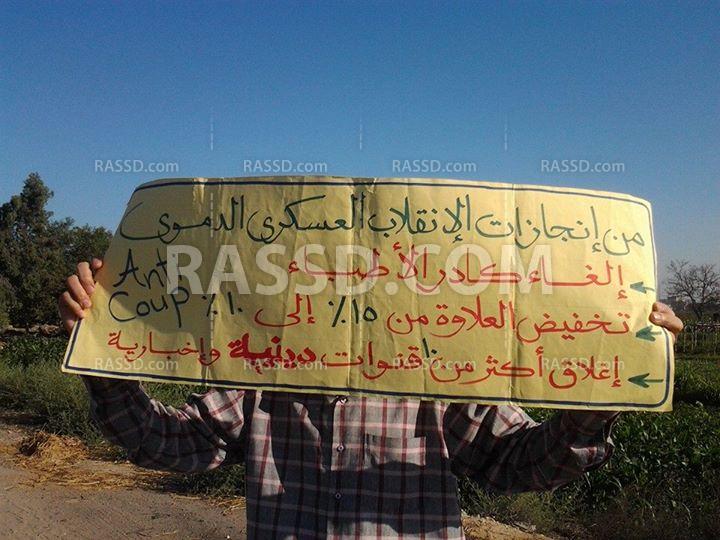 RASSD.com RASSD.com RASSD.com RASSD.com
من إنجازات الإنقلاب العسكرى الدموى
إلغاء كادر الأطباء
تخفيض العلاوة من ١٥٪ إلى ١٠٪
إغلاق أكثر من ١٠ قنوات وإخبارية
Ant
Coup
RASSD.COM
RASSD.com RASSD.com RASSD.com RASSD.com